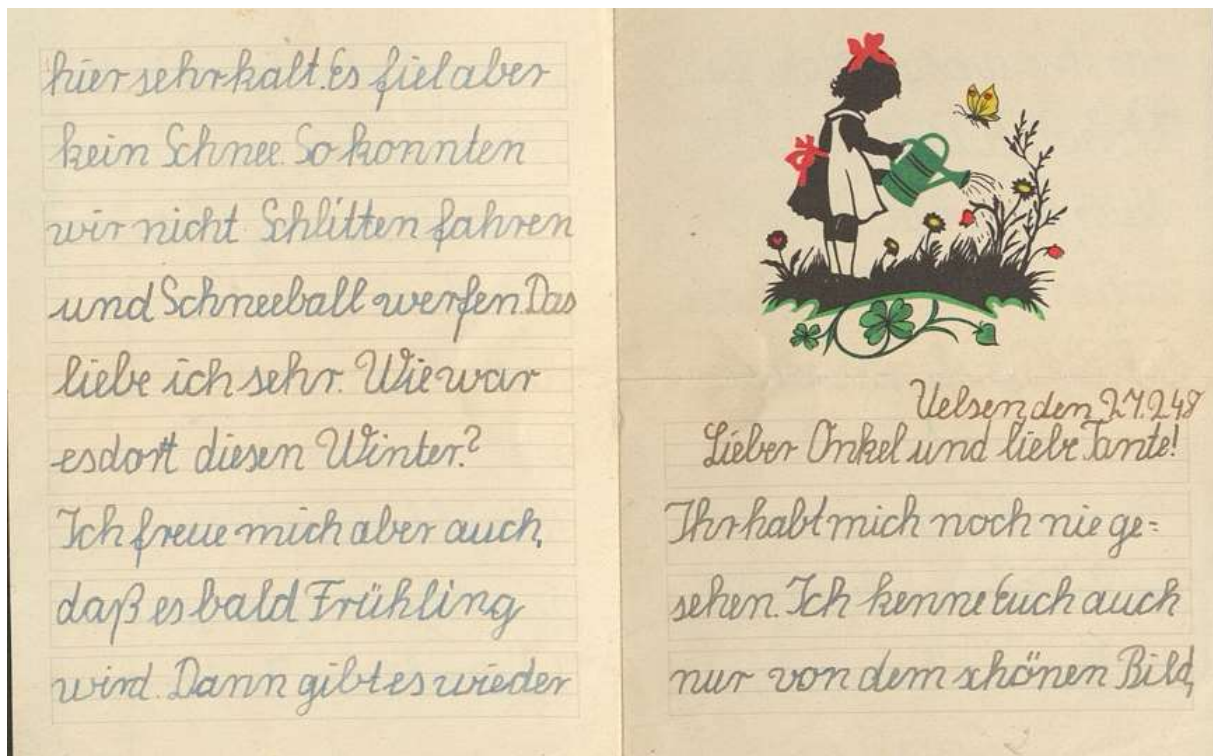 hier sehr kalt. Es fiel aber
kein Schnee. So konnten
wir nicht Schlitten fahren
und Schneeball werfen. Das
liebe ich sehr. Wie war
es dort diesen Winter?
Ich freue mich aber auch,
daß es bald Frühling
wird. Dann gibt es wieder
Uelsen, den 27.2.48
Lieber Onkel und liebe Tante!
Ihr habt mich noch nie ge=
sehen. Ich kenne Euch auch
nur von dem schönen Bild,